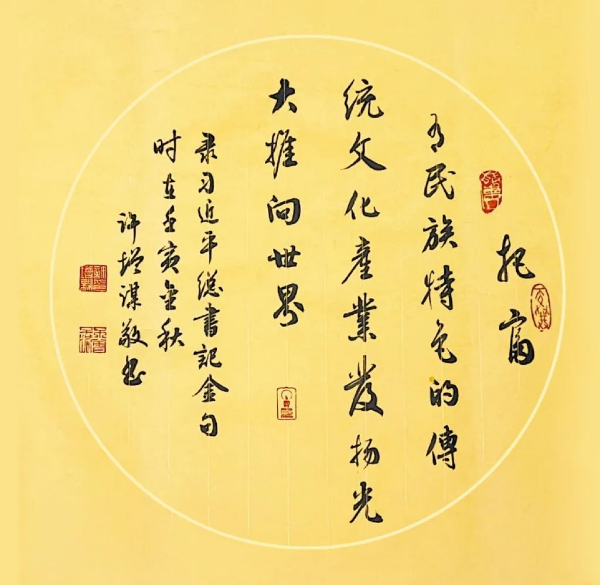 把富
有民族特色的傳
统文化產業發扬光
大推向世界
录习近平總書記金句
时在壬寅金秋
许增谋敬书